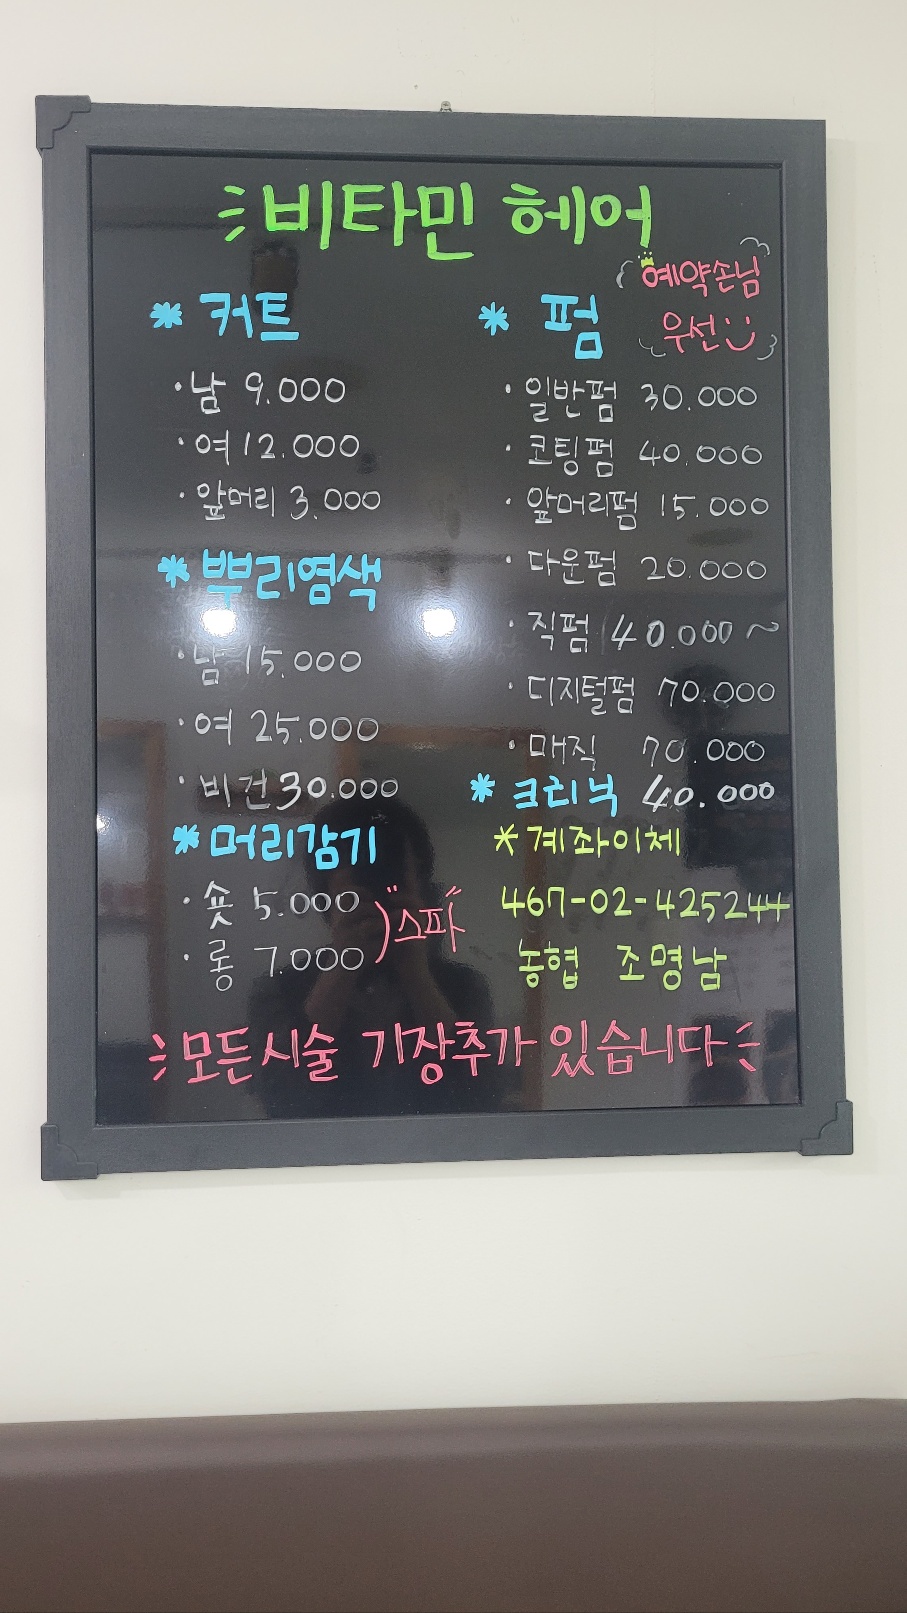 비타민 헤어
예약손님
우선
* 커트
· 남 9.000
· 여 12.000
· 앞머리 3.000
* 뿌리염색
· 남 15.000
· 여 25.000
· 비건 30.000
* 머리감기
· 숏 5.000
· 롱 7.000
) "스파"
* 펌
· 일반펌 30.000
· 코팅펌 40.000
· 앞머리펌 15.000
· 다운펌 20.000
· 직펌 40.000 ~
· 디지털펌 70.000
· 매직 70.000
* 크리닉 40.000
* 계좌이체
467-02-425244
농협 조명남
모든시술 기장추가 있습니다